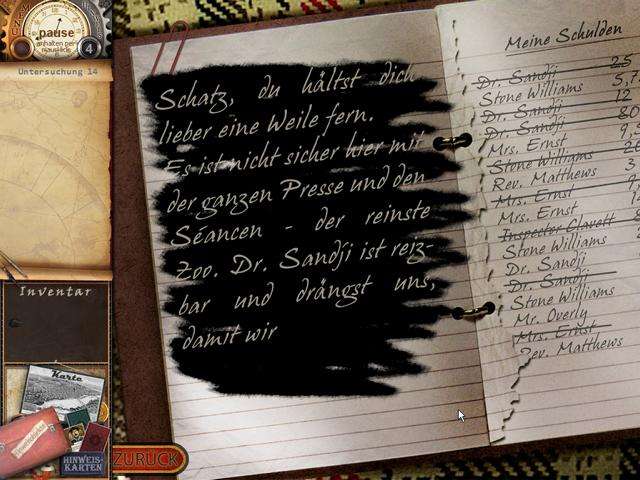 pause
anhalten per
mausklick
4
Untersuchung 14
Inventar
Karte
HINWEIS-
KARTEN
ZURÜCK
Schatz, du hältst dich
lieber eine Weile fern.
Es ist nicht sicher hier mit
der ganzen Presse und den
Séancen - der reinste
Zoo. Dr. Sandji ist reiz-
bar und drängt uns,
damit wir
Meine Schulden
Dr. Sandji 25
Stone Williams 5,
Dr. Sandji 12
Dr. Sandji 80
Mrs. Ernst 9
Stone Williams 20
Rev. Matthews 3
Mrs. Ernst 9
Mrs. Ernst
Inspector Clavett
Stone Williams
Dr. Sandji
Dr. Sandji
Stone Williams
Mr. Overly
Mrs. Ernst
Rev. Matthews